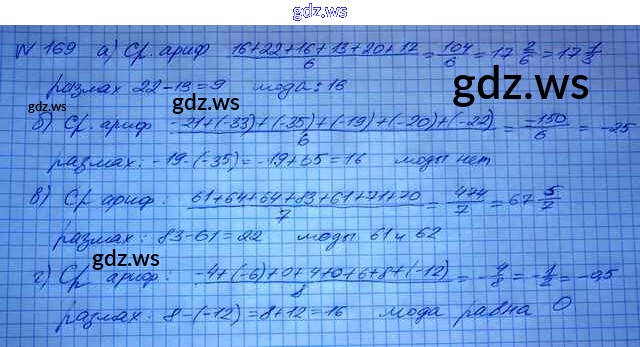 gdz.ws
N 169 а) Ср. ариф 16+22+16+13+20+17/6 = 104/6 = 17 2/6 = 17 1/3
gdz.ws
размах 22-13=9 мода: 16
gdz.ws
б) Ср. ариф -21+(-33)+(-35)+(-19)+(-20)+(-22)/6 = -150/6 = -25
размах: -19-(-35)=-19+35=16 моды нет
в) Ср ариф: 61+64+64+83+61+71+70/7 = 474/7 = 67 5/7
размах: 83-61=22 моды 61 и 62
gdz.ws
г) Ср ариф: -4+(-6)+0+4+0+6+8+(-12)/8 = -4/8 = -1/2 = -0,5
размах: 8-(-12)=8+12=16 мода равна 0
gdz.ws